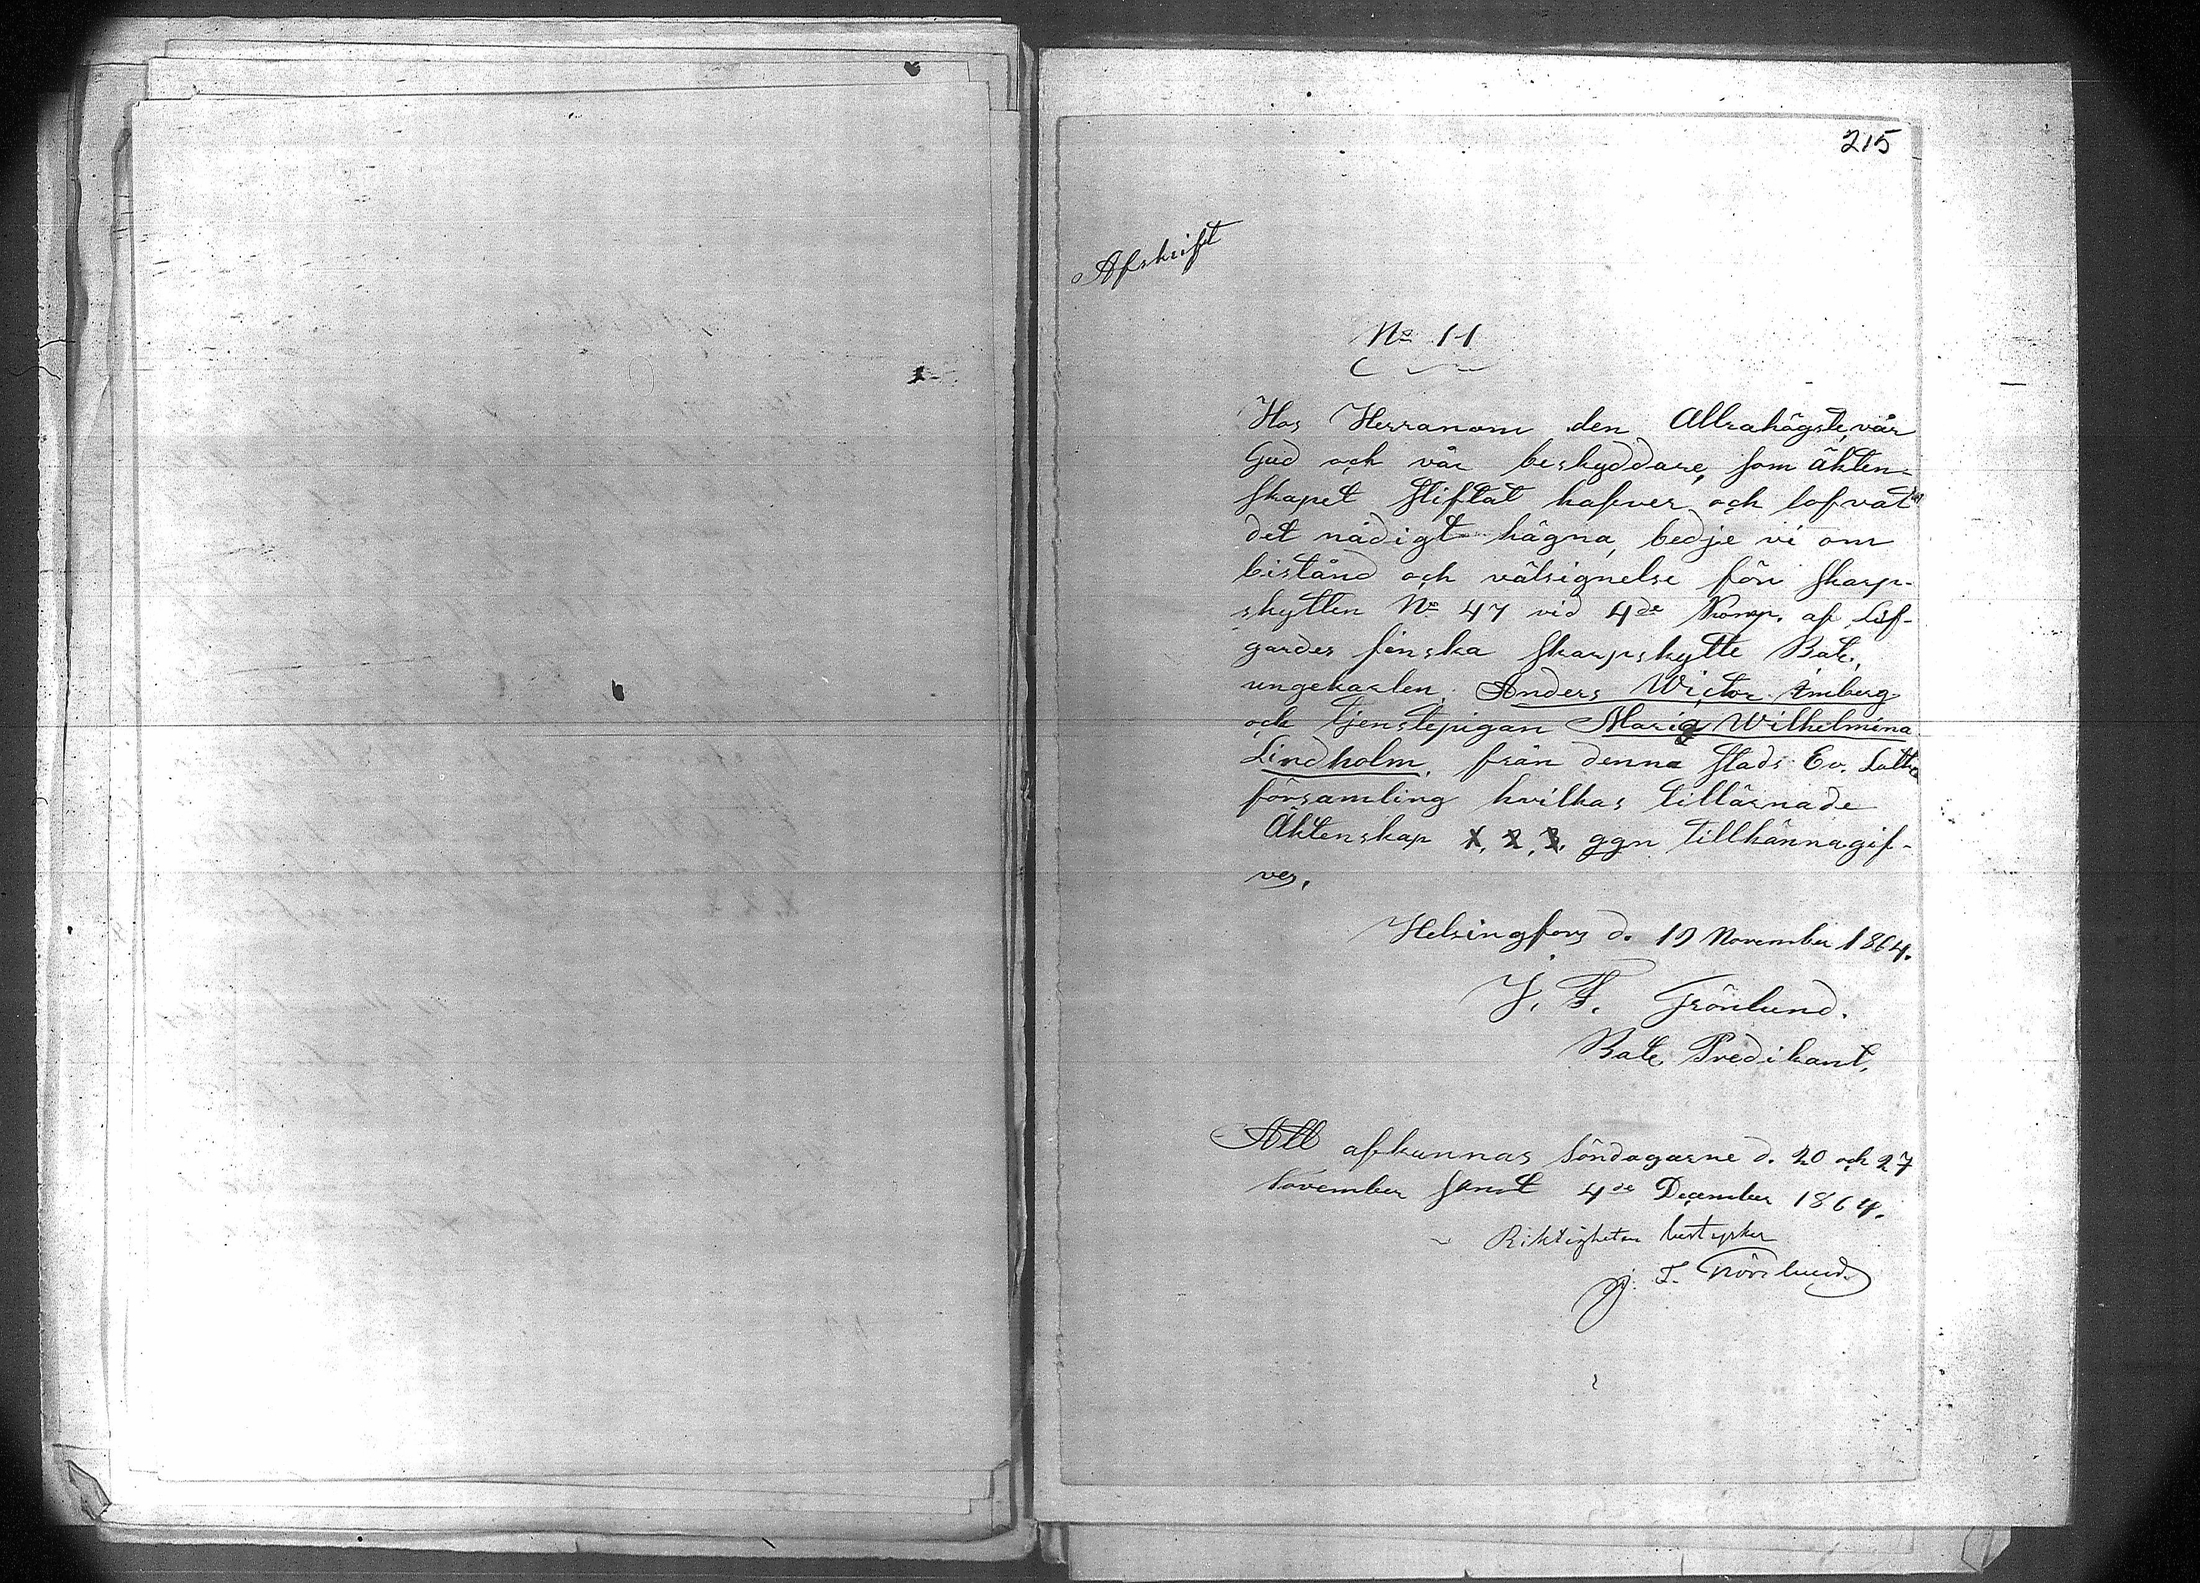 215
Afskrift
No 11
Hos Herranom den Allrahögste, vår
Gud och vår beskyddare, som äkten-
skapet stiftat hafver, och lofvat
det nådigt hägna, bedje vi om
bistånd och välsignelse för skarp-
skytten No 47 vid 4de Komp. af Lif-
gardes finska skarpskytte Bat.,
ungekarlen, Anders Wictor Imberg
och tjenstepigan Maria Wilhelmina
Lindholm, från denna stads Ev. Luth.
församling hvilkas tillärnade
Äktenskap 1, 2, 3, ggn tillkännagif-
ves.
Helsingfors d. 19 November 1864.
J. F. Trönlund.
Bat. Predikant.
Att afkunnas söndagarne d. 20 och 27
November samt 4de December 1864.
Riktigheten bestyrker
J. F.